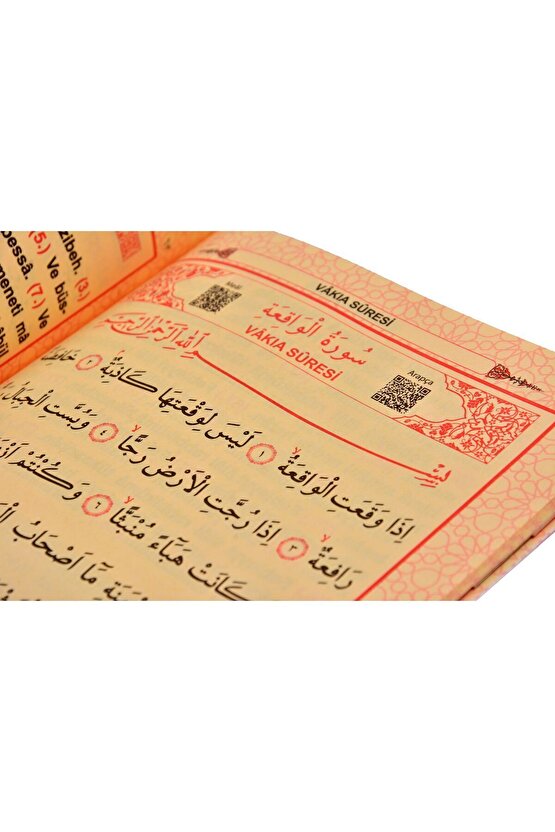 zibeh. (3.)
(5.) Ve büs-
bessâ. (7.) Ve
meneti mâ
VÂKIA SÛRESİ
Meâl
سُورَةُ الْوَاقِعَةِ
VÂKIA SÛRESİ
Arapça
بِسْمِ اللّٰهِ الرَّحْمٰنِ الرَّحِيمِ
اِذَا وَقَعَتِ الْوَاقِعَةُۙ ﴿١﴾ لَيْسَ لِوَقْعَتِهَا كَاذِبَةٌۢ ﴿٢﴾
رَافِعَةٌۙ ﴿٣﴾ اِذَا رُجَّتِ الْاَرْضُ رَجًّاۙ ﴿٤﴾ وَبُسَّتِ الْجِبَالُ
كَانَتْ هَبَٓاءً مُنْبَثًّاۙ ﴿٦﴾ وَكُنْتُمْ
مَٓا اَصْحَابُ